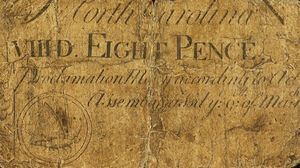 North Carolina N
VIII D. EIGHT PENCE
Proclamation Money according to Act
Assembly